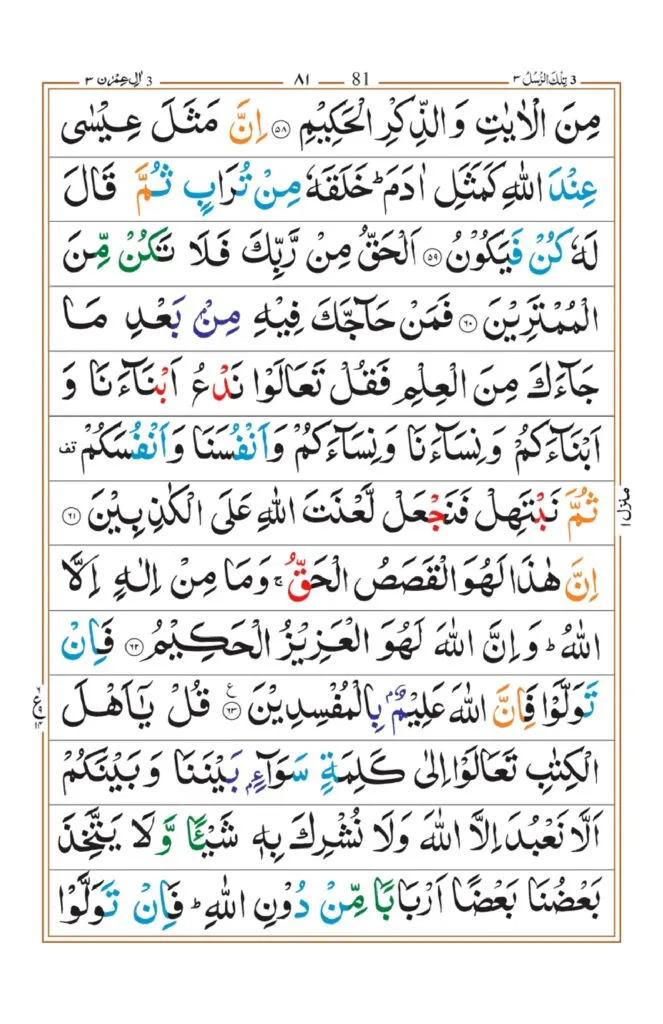 3 تِلْكَ الرُّسُلُ ٣
81 ٨١
3 اٰلِ عِمْرٰن ٣
مِنَ الْاٰيٰتِ وَالذِّكْرِ الْحَكِيْمِ ۝٥٨ اِنَّ مَثَلَ عِيْسٰى
عِنْدَ اللّٰهِ كَمَثَلِ اٰدَمَ ؕ خَلَقَهٗ مِنْ تُرَابٍ ثُمَّ قَالَ
لَهٗ كُنْ فَيَكُوْنُ ۝٥٩ اَلْحَقُّ مِنْ رَّبِّكَ فَلَا تَكُنْ مِّنَ
الْمُمْتَرِيْنَ ۝٦٠ فَمَنْ حَآجَّكَ فِيْهِ مِنْۢ بَعْدِ مَا
جَآءَكَ مِنَ الْعِلْمِ فَقُلْ تَعَالَوْا نَدْعُ اَبْنَآءَنَا وَ
اَبْنَآءَكُمْ وَنِسَآءَنَا وَنِسَآءَكُمْ وَاَنْفُسَنَا وَاَنْفُسَكُمْ تف
ثُمَّ نَبْتَهِلْ فَنَجْعَلْ لَّعْنَتَ اللّٰهِ عَلَى الْكٰذِبِيْنَ ۝٦١
منزل ١
اِنَّ هٰذَا لَهُوَ الْقَصَصُ الْحَقُّ ۚ وَمَا مِنْ اِلٰهٍ اِلَّا
اللّٰهُ ؕ وَاِنَّ اللّٰهَ لَهُوَ الْعَزِيْزُ الْحَكِيْمُ ۝٦٢ فَاِنْ
تَوَلَّوْا فَاِنَّ اللّٰهَ عَلِيْمٌۢ بِالْمُفْسِدِيْنَ ۝٦٣ ع قُلْ يٰۤاَهْلَ
الْكِتٰبِ تَعَالَوْا اِلٰى كَلِمَةٍ سَوَآءٍۭ بَيْنَنَا وَبَيْنَكُمْ
اَلَّا نَعْبُدَ اِلَّا اللّٰهَ وَلَا نُشْرِكَ بِهٖ شَيْـًٔا وَّلَا يَتَّخِذَ
بَعْضُنَا بَعْضًا اَرْبَابًا مِّنْ دُوْنِ اللّٰهِ ؕ فَاِنْ تَوَلَّوْا